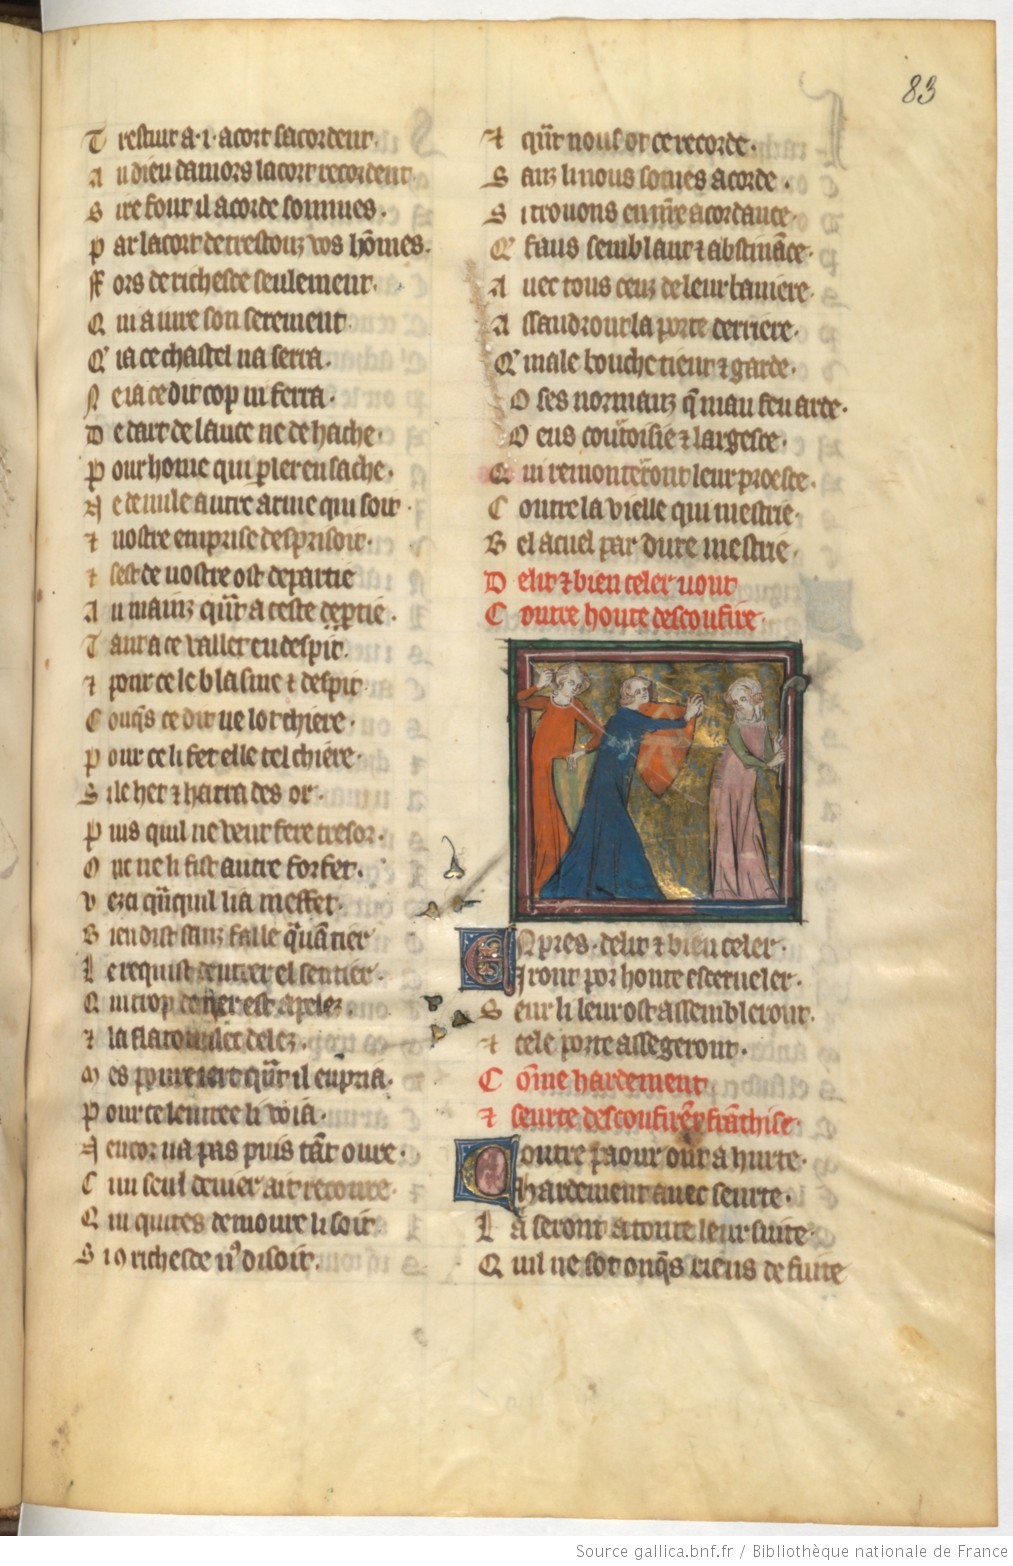 83
T restuit a .i. acort sacordent.
A u dieu damors lacort recordent
S ire font il acorde sommes.
P ar lacort de trestouz vos hõmes.
F ors de richesce seulement.
Q ui a iure son serement
Q ia ce chastel na serra.
N e ia ce dit cop ni ferra.
D e dart de lance ne de hache.
P our home qui pler en sache.
N e de nule autre arme qui soit.
⁊ nostre emprise desprisoit.
⁊ sest de nostre ost departie
A u mainz qũt a ceste ꝑtie.
T ant a ce vallet en despit.
⁊ pour ce le blasme ⁊ despit
C onqs ce dit ne lot chiere.
P our ce li fet elle tel chiere.
S i le het ⁊ harra des or.
P uis quil ne veut fere tresor.
O nc ne li fist autre forfet.
V eza qũquil li a meffet.
B ien dist sanz falle qũãtier
L e requist dentrer el sentier.
Q ui trop
⁊ la flatoit
M es poure iert qũt il en pria.
P our ce lentree li voia.
N encor na pas puis tãt oure.
C un seul denier ait recoure.
Q ui quites demoure li soit
S i 9 richesce nꝰ disoit.
⁊ qũt nous ot ce recorde.
S anz li nous somes acorde.
S i trouons en nr̃e acordance.
Q faus semblant ⁊ abstinãce.
A uec tous ceuz de leur baniere.
A ssaudront la porte derriere.
Q male bouche tient ⁊ garde.
O ses normanz q̃ mau feu arde.
O eus courtoisie ⁊ largesce.
Q ui remonteront leur proesce.
C ontre la vielle qui mestrie.
B el acuel par dure mestrie.
D elit ⁊ bien celer vont
C ontre honte desconfire.
E Npres. delit ⁊ bien celer.
Iront por honte escerueler.
S eur li leur ost assembleront.
⁊ cele porte assegeront.
C õme hardement
⁊ seurte desconfirẽt frãchise.
Contre paour ont ahurte.
hardement auec seurte.
L a seront a toute leur suite.
Q uil ne sot onqs riens de fuite
Source gallica.bnf.fr / Bibliothèque nationale de France